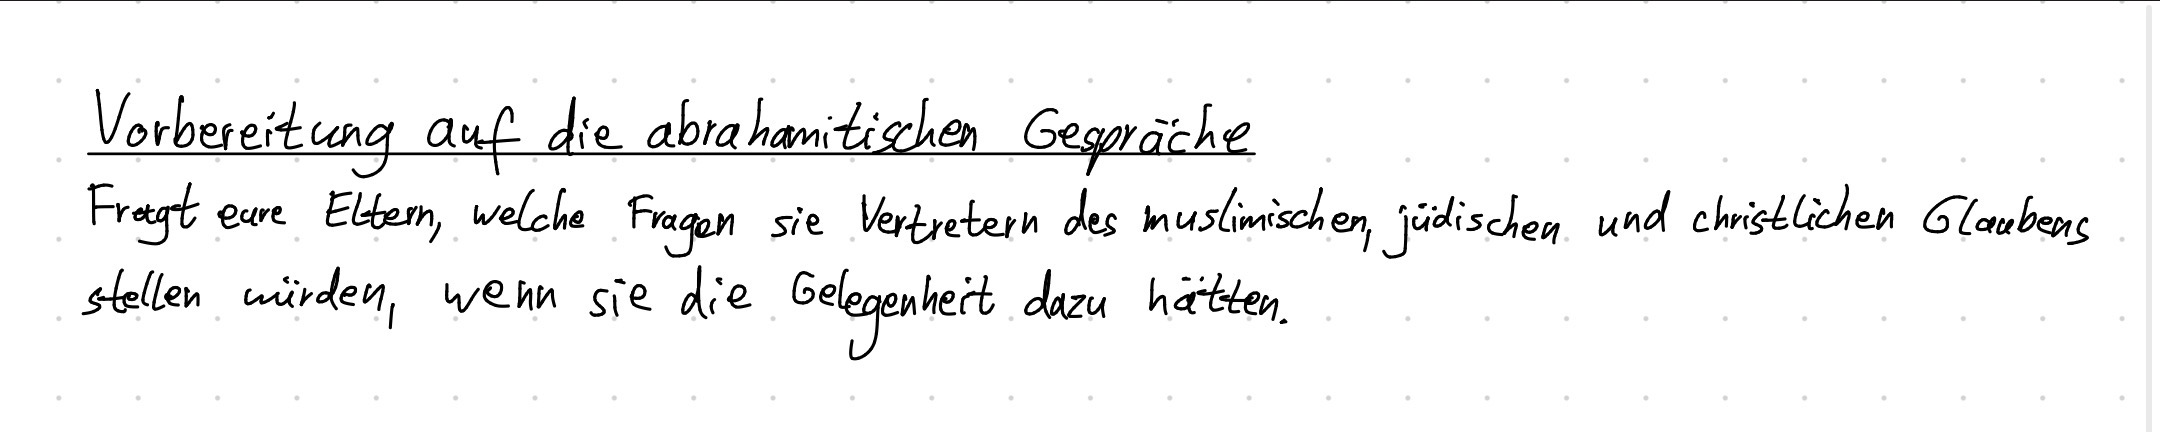 Vorbereitung auf die abrahamitischen Gespräche
Fragt eure Eltern, welche Fragen sie Vertretern des muslimischen, jüdischen und christlichen Glaubens
stellen würden, wenn sie die Gelegenheit dazu hätten.